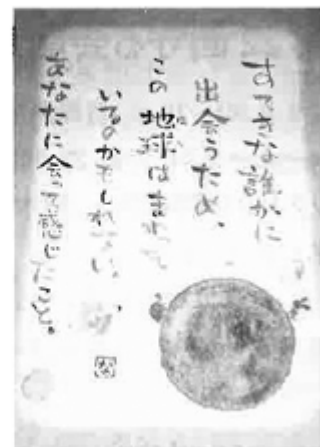 すてきな誰かに
出会うため、
この地球はまわって
いるのかもしれない。
あなたに会って感じたこと。